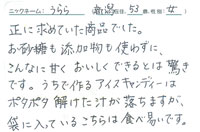 ニックネーム: うらら 新潟県在住 53歳 性別(女)
正に求めていた商品でした。
お砂糖も添加物も使わずに、
こんなに甘くおいしくできるとは驚き
です。うちで作るアイスキャンディーは
ポタポタ解けた汁が落ちますが、
袋に入っているこちらは食べ易いです。